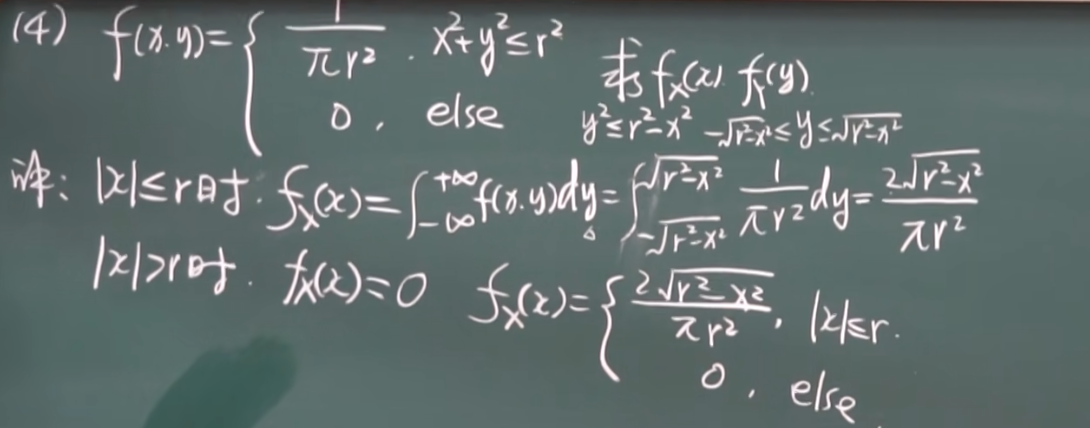 (4) f(x.y)={ 1/πr² . x²+y²≤r²
0 , else
求 f_X(x) f_Y(y).
y²≤r²-x² -√(r²-x²)≤y≤√(r²-x²)
解: |x|≤r时. f_X(x)=∫_{-∞}^{+∞}f(x.y)dy=∫_{-√(r²-x²)}^{√(r²-x²)} 1/πr² dy= 2√(r²-x²)/πr²
|x|>r时. f_X(x)=0 f_X(x)={ 2√(r²-x²)/πr² , |x|≤r.
0 , else